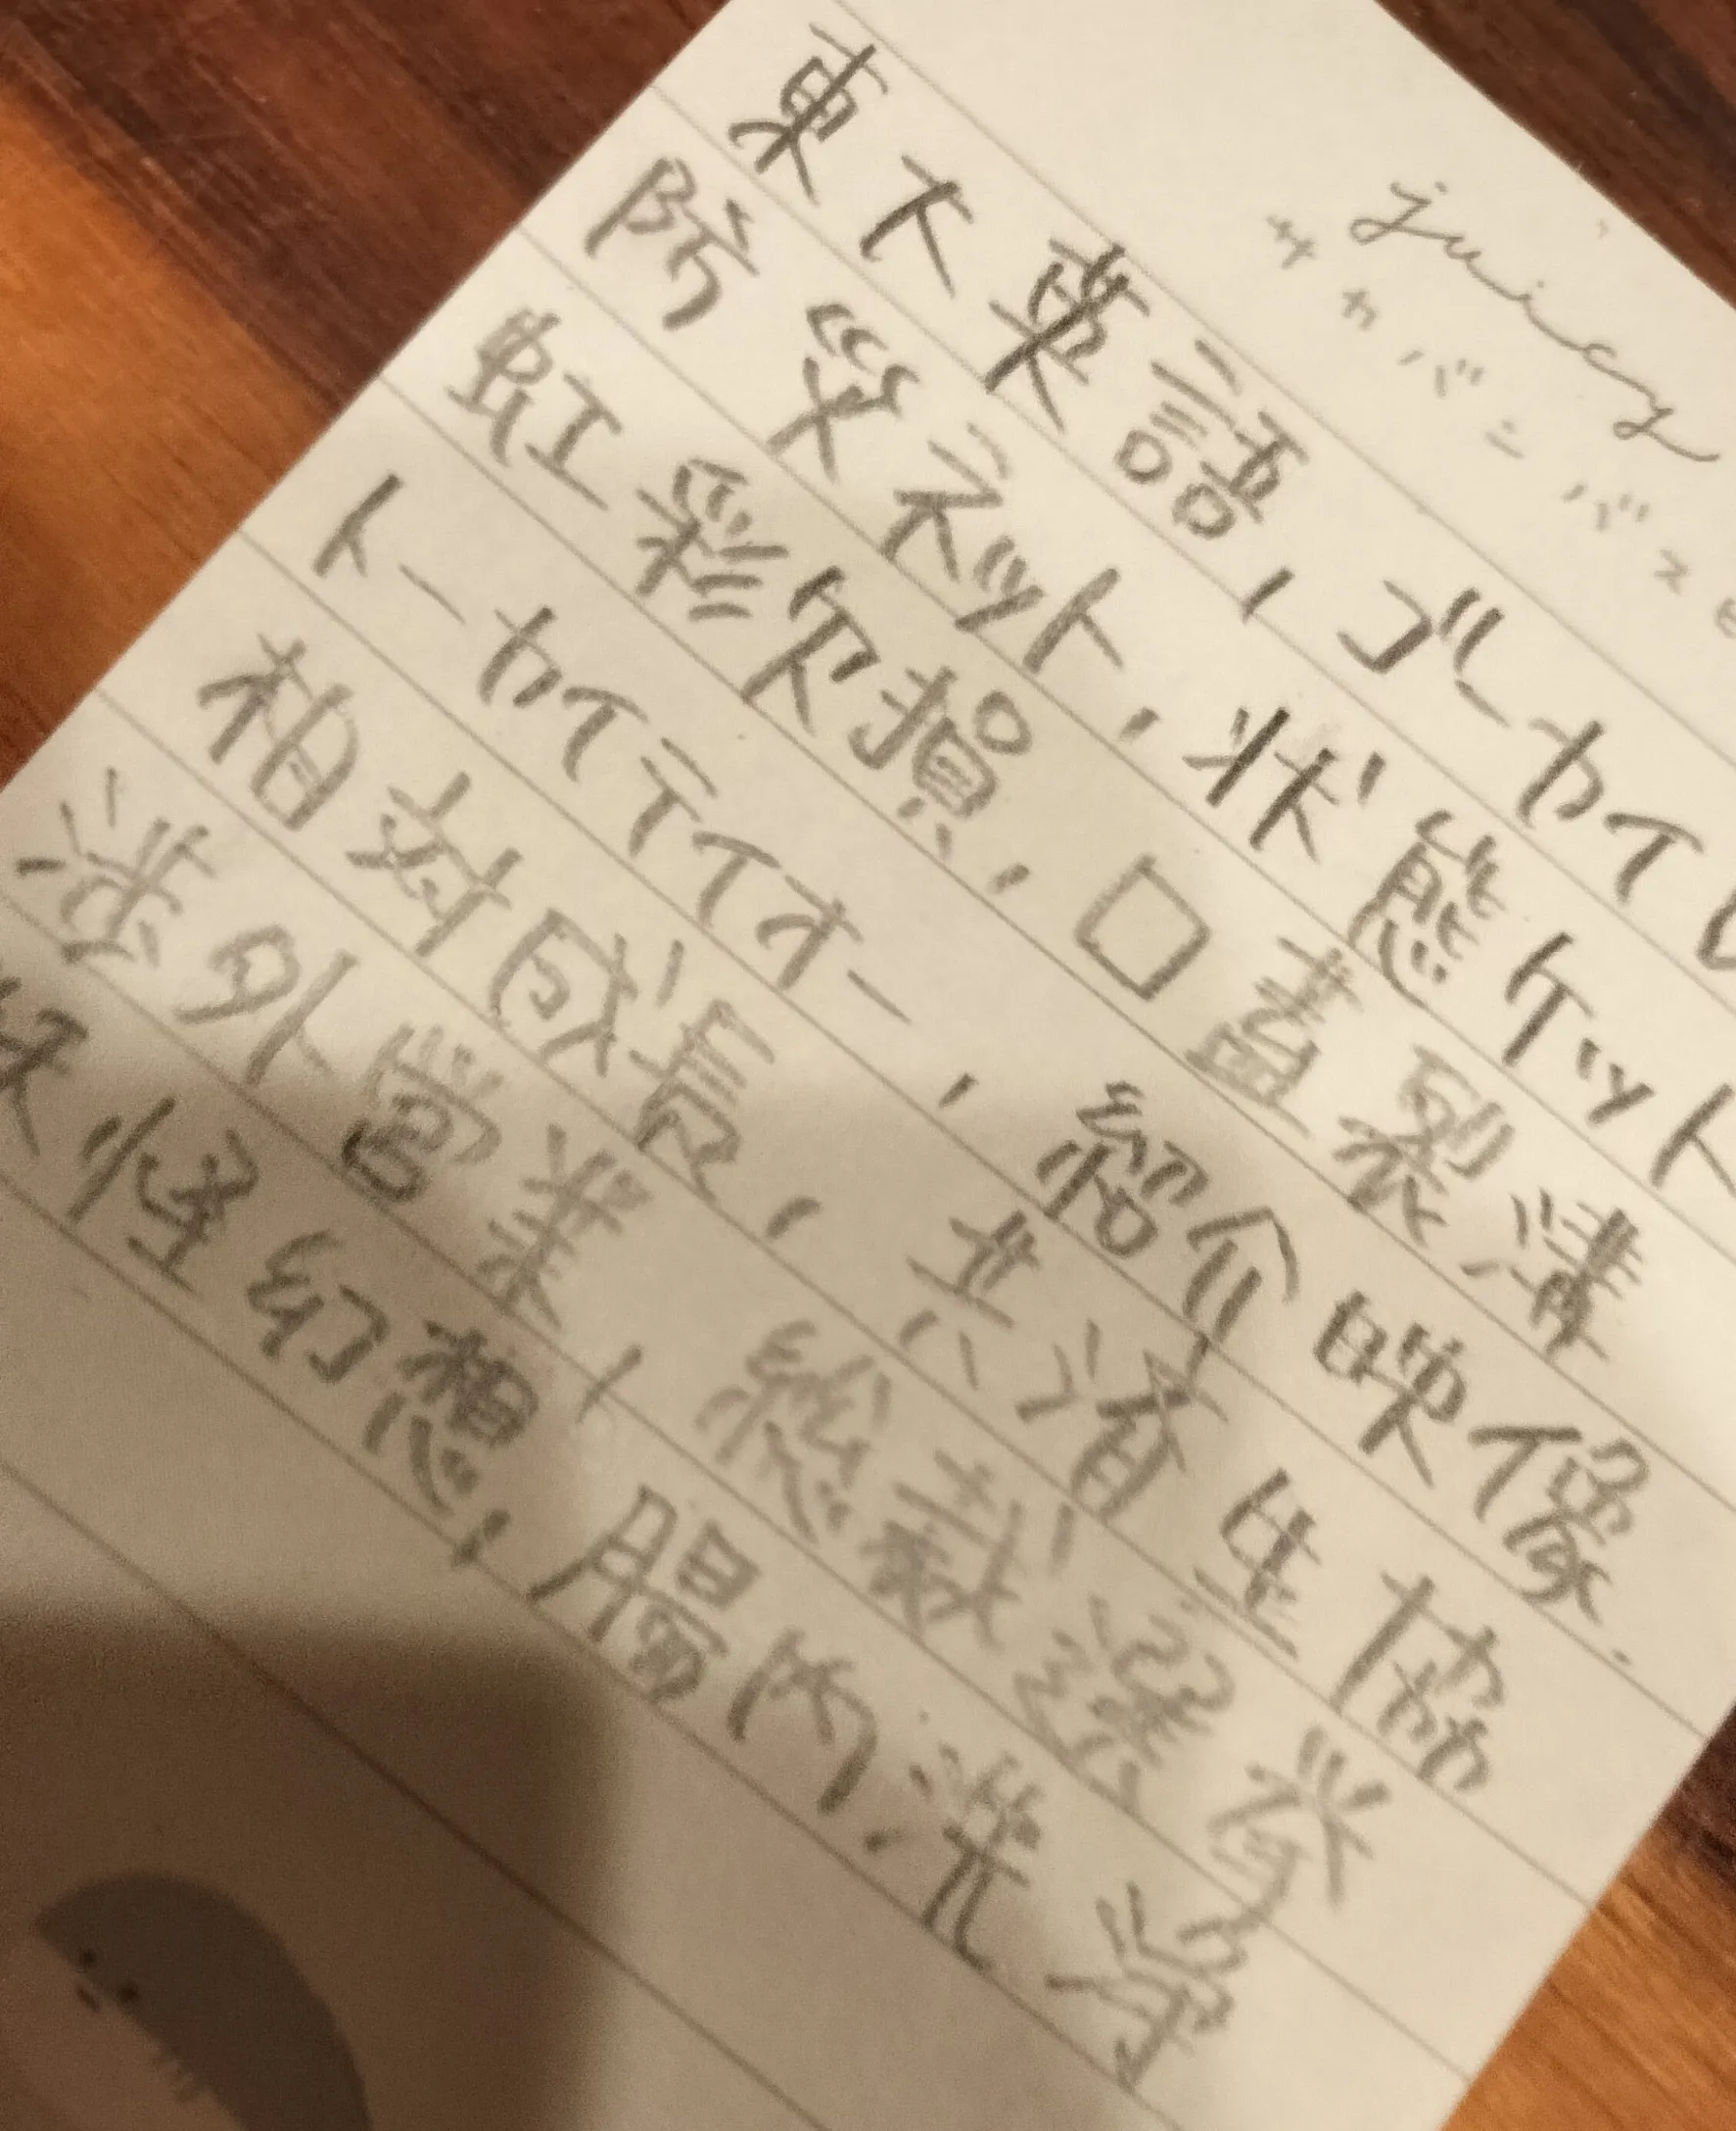 juicy
キカバンバスヒ
東大英語,ゴーカイレ
防災ネット,状態ケット
虹彩欠損,口蓋裂溝
トーカイテイオー,紹介映像.
相対成長,共済生協
渉外営業,総裁選挙
妖怪幻想,腸内洗浄